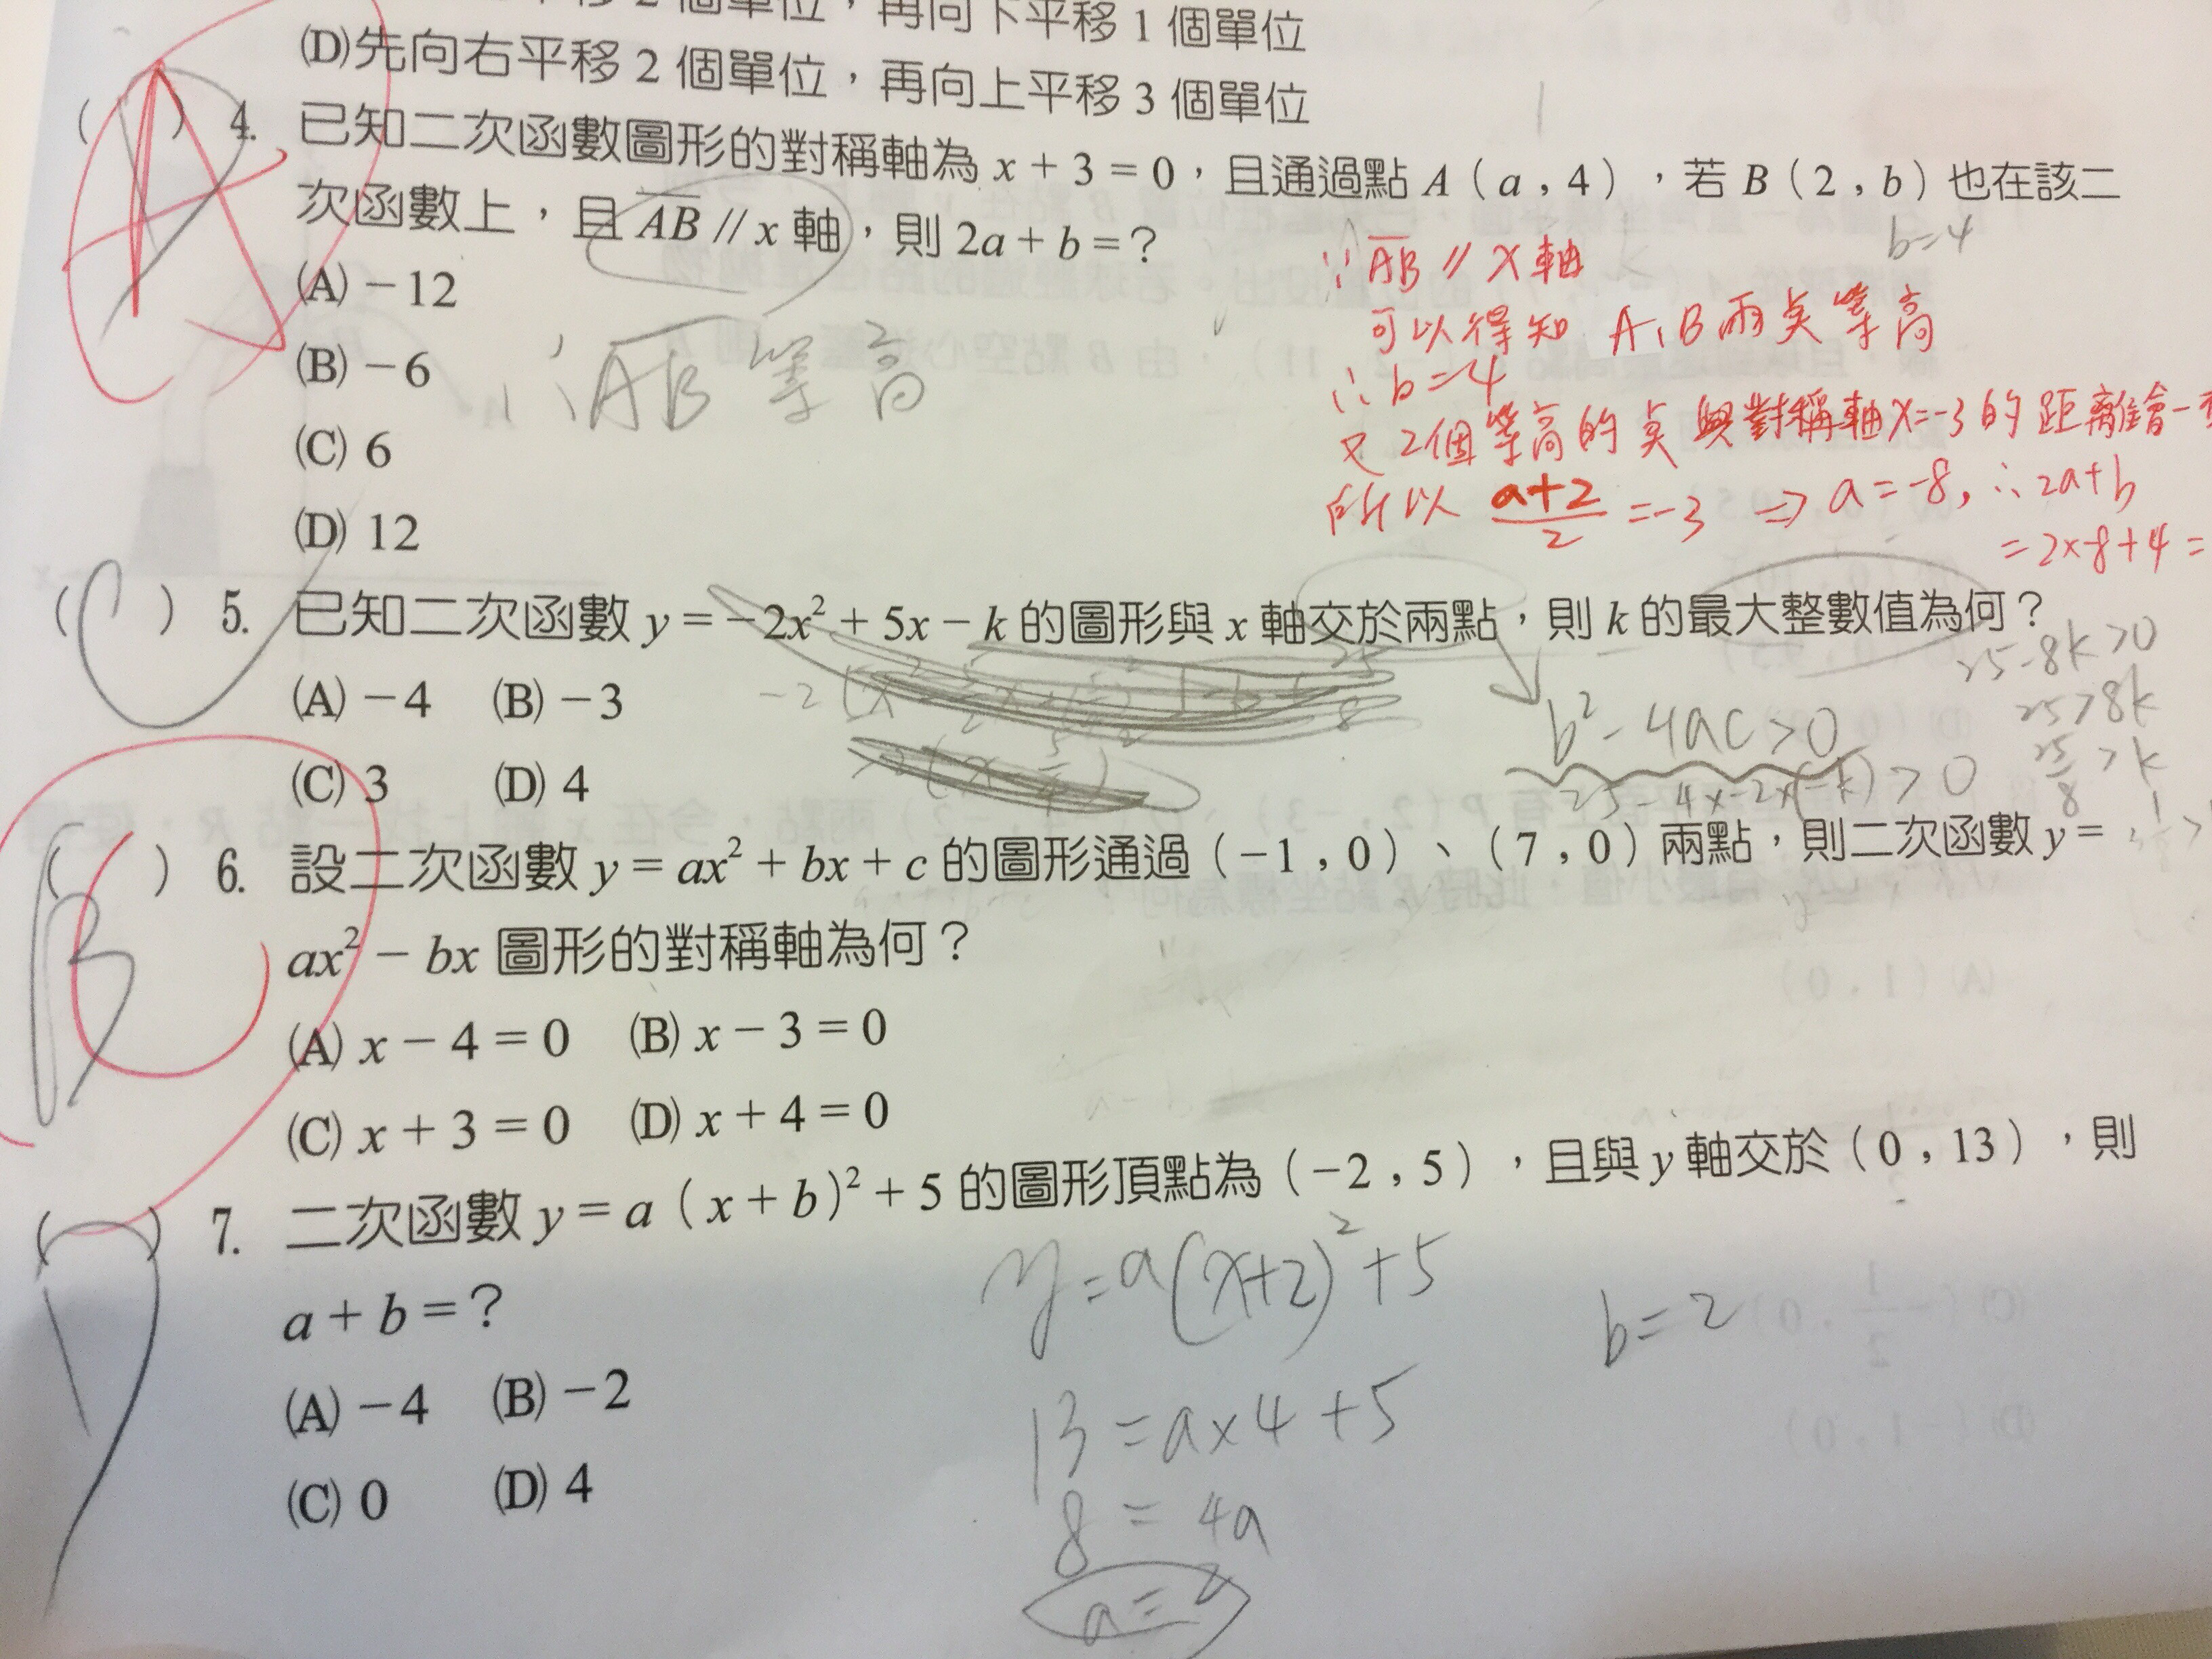 平移 2 個單位，再向下平移 1 個單位
(D)先向右平移 2 個單位，再向上平移 3 個單位
( ) 4. 已知二次函數圖形的對稱軸為 x + 3 = 0，且通過點 A（a , 4），若 B（2 , b）也在該二
b=4
次函數上，且 AB // x 軸，則 2a + b = ?
∵ AB // X 軸
(A) −12
可以得知 A、B兩點等高
(B) −6
∴ AB 等高
∴ b=4
又 2個等高的點與對稱軸X=-3的距離會一
(C) 6
所以 (a+2)/2 = -3 ⇒ a = -8, ∴ 2a+b
(D) 12
= 2×-8+4 =
A
( C ) 5. 已知二次函數 y = −2x² + 5x − k 的圖形與 x 軸交於兩點，則 k 的最大整數值為何？
25-8k>0
(A) −4 (B) −3
b²-4ac>0
25>8k
(C) 3 (D) 4
25-4×-2×(-k)>0
25/8 >k
( ) 6. 設二次函數 y = ax² + bx + c 的圖形通過（−1 , 0）、（7 , 0）兩點，則二次函數 y =
B C
ax² − bx 圖形的對稱軸為何？
(A) x − 4 = 0 (B) x − 3 = 0
(C) x + 3 = 0 (D) x + 4 = 0
( D ) 7. 二次函數 y = a（x + b）² + 5 的圖形頂點為（−2 , 5），且與 y 軸交於（0 , 13），則
y=a(x+2)²+5
b=2
a + b = ?
(A) −4 (B) −2
13=a×4+5
(C) 0 (D) 4
8=4a
a=2